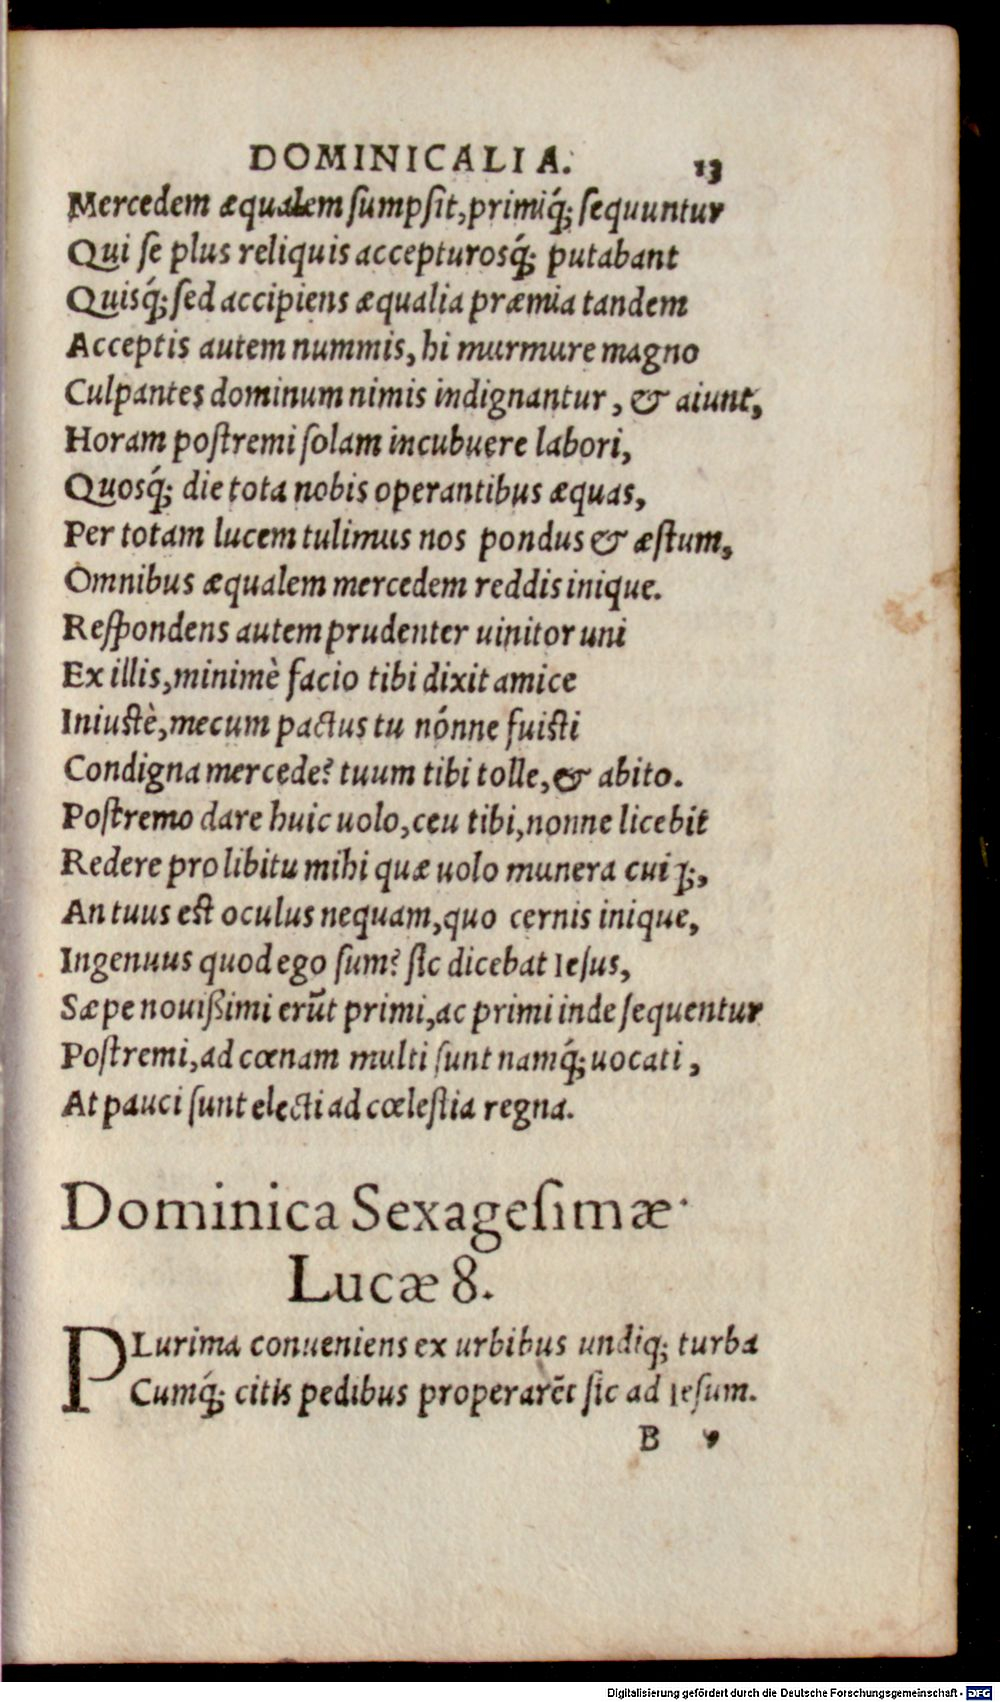 DOMINICALIA. 13
Mercedem æqualem ſumpſit, primiq́; ſequuntur
Qui ſe plus reliquis accepturosq́; putabant
Quisq́; ſed accipiens æqualia præmia tandem
Acceptis autem nummis, hi murmure magno
Culpantes dominum nimis indignantur, & aiunt,
Horam poſtremi ſolam incubuere labori,
Quosq́; die tota nobis operantibus æquas,
Per totam lucem tulimus nos pondus & æſtum,
Omnibus æqualem mercedem reddis inique.
Reſpondens autem prudenter uinitor uni
Ex illis, minimè facio tibi dixit amice
Iniuſtè, mecum pactus tu nónne fuiſti
Condigna mercede? tuum tibi tolle, & abito.
Poſtremo dare huic uolo, ceu tibi, nonne licebit
Redere pro libitu mihi quæ uolo munera cuiq;,
An tuus eſt oculus nequam, quo cernis inique,
Ingenuus quod ego ſum? ſic dicebat Ieſus,
Sæpe nouißimi erũt primi, ac primi inde ſequentur
Poſtremi, ad cœnam multi ſunt namq́; uocati,
At pauci ſunt electi ad cœleſtia regna.
Dominica Sexageſimæ
Lucæ 8.
PLurima conueniens ex urbibus undiq; turba
Cumq́; citis pedibus properarẽt ſic ad Ieſum.
B
Digitalisierung gefördert durch die Deutsche Forschungsgemeinschaft - DFG